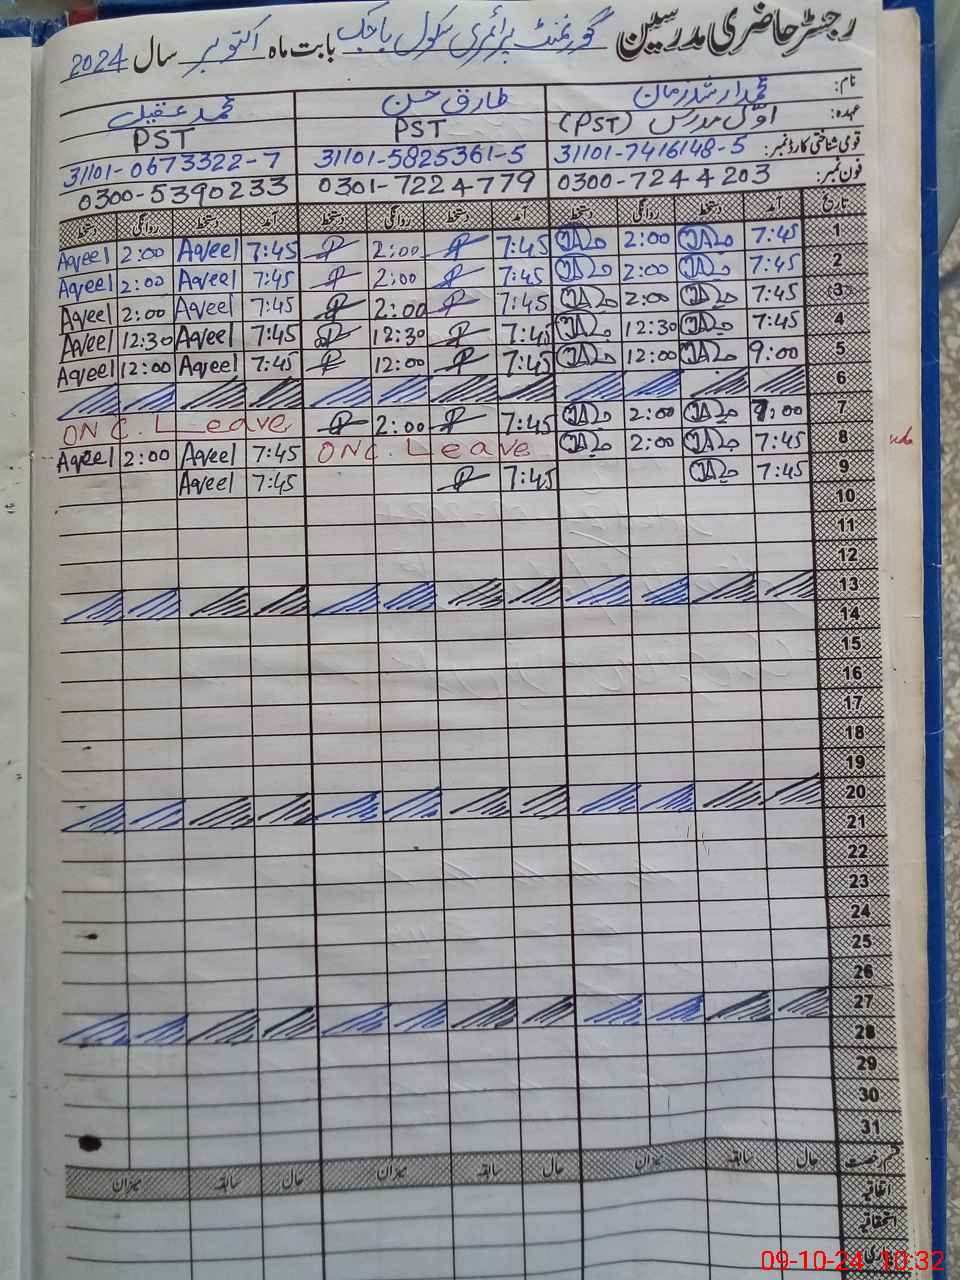 رجسٹر حاضری مدرسین گورنمنٹ پرائمری سکول بابت ماہ اکتوبر سال 2024
نام: محمد ارشد زمان طارق حسن محمد عقیل
عہدہ: اول مدرس (PST) PST PST
قومی شناختی کارڈ نمبر: 31101-7416148-5 31101-5825361-5 31101-0673322-7
فون نمبر: 0300-7244203 0301-7224779 0300-5390233
تاریخ آمد دستخط روانگی دستخط آمد دستخط روانگی دستخط آمد دستخط روانگی دستخط
1 7:45 2:00 7:45 2:00 7:45 Aqeel 2:00 Aqeel
2 7:45 2:00 7:45 2:00 7:45 Aqeel 2:00 Aqeel
3 7:45 2:00 7:45 2:00 7:45 Aqeel 2:00 Aqeel
4 7:45 12:30 7:45 12:30 7:45 Aqeel 12:30 Aqeel
5 9:00 12:00 7:45 12:00 7:45 Aqeel 12:00 Aqeel
6
7 :00 2:00 7:45 2:00 ON C. Leave
8 7:45 2:00 ON C. Leave 7:45 Aqeel 2:00 Aqeel
9 7:45 7:45 7:45 Aqeel
10
11
12
13
14
15
16
17
18
19
20
21
22
23
24
25
26
27
28
29
30
31
قسم رخصت حال سابقہ میزان حال سابقہ میزان حال سابقہ میزان
اتفاقیہ
استحقاقیہ
09-10-24 10:32